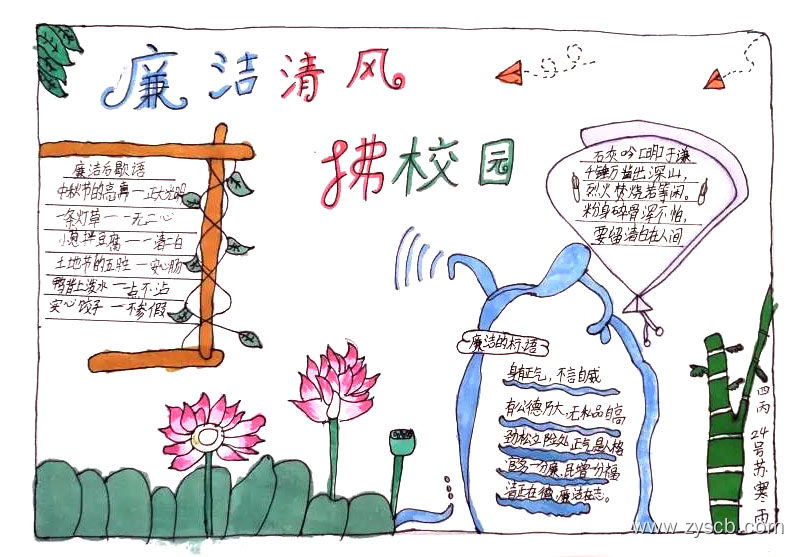 廉洁清风
拂校园
廉洁后歇语
中秋节的高离一正大光明
一条灯草一一无二心
小葱拌豆腐一一清二白
土地爷的五脏一安心肠
鸭背上泼水一点不沾
实心饺子一不参假
石灰吟[明]于谦
千锤万凿出深山,
烈火焚烧若等闲。
粉身碎骨深不怕,
要留清白在人间
廉洁的标语
身有正气，不言自威
有公德乃大,无私品自高
劲松立险处,正气是人格
官多一分廉,民增一分福
清正在德,廉洁在志。
四丙24号苏寒雨
www.zyscb.com